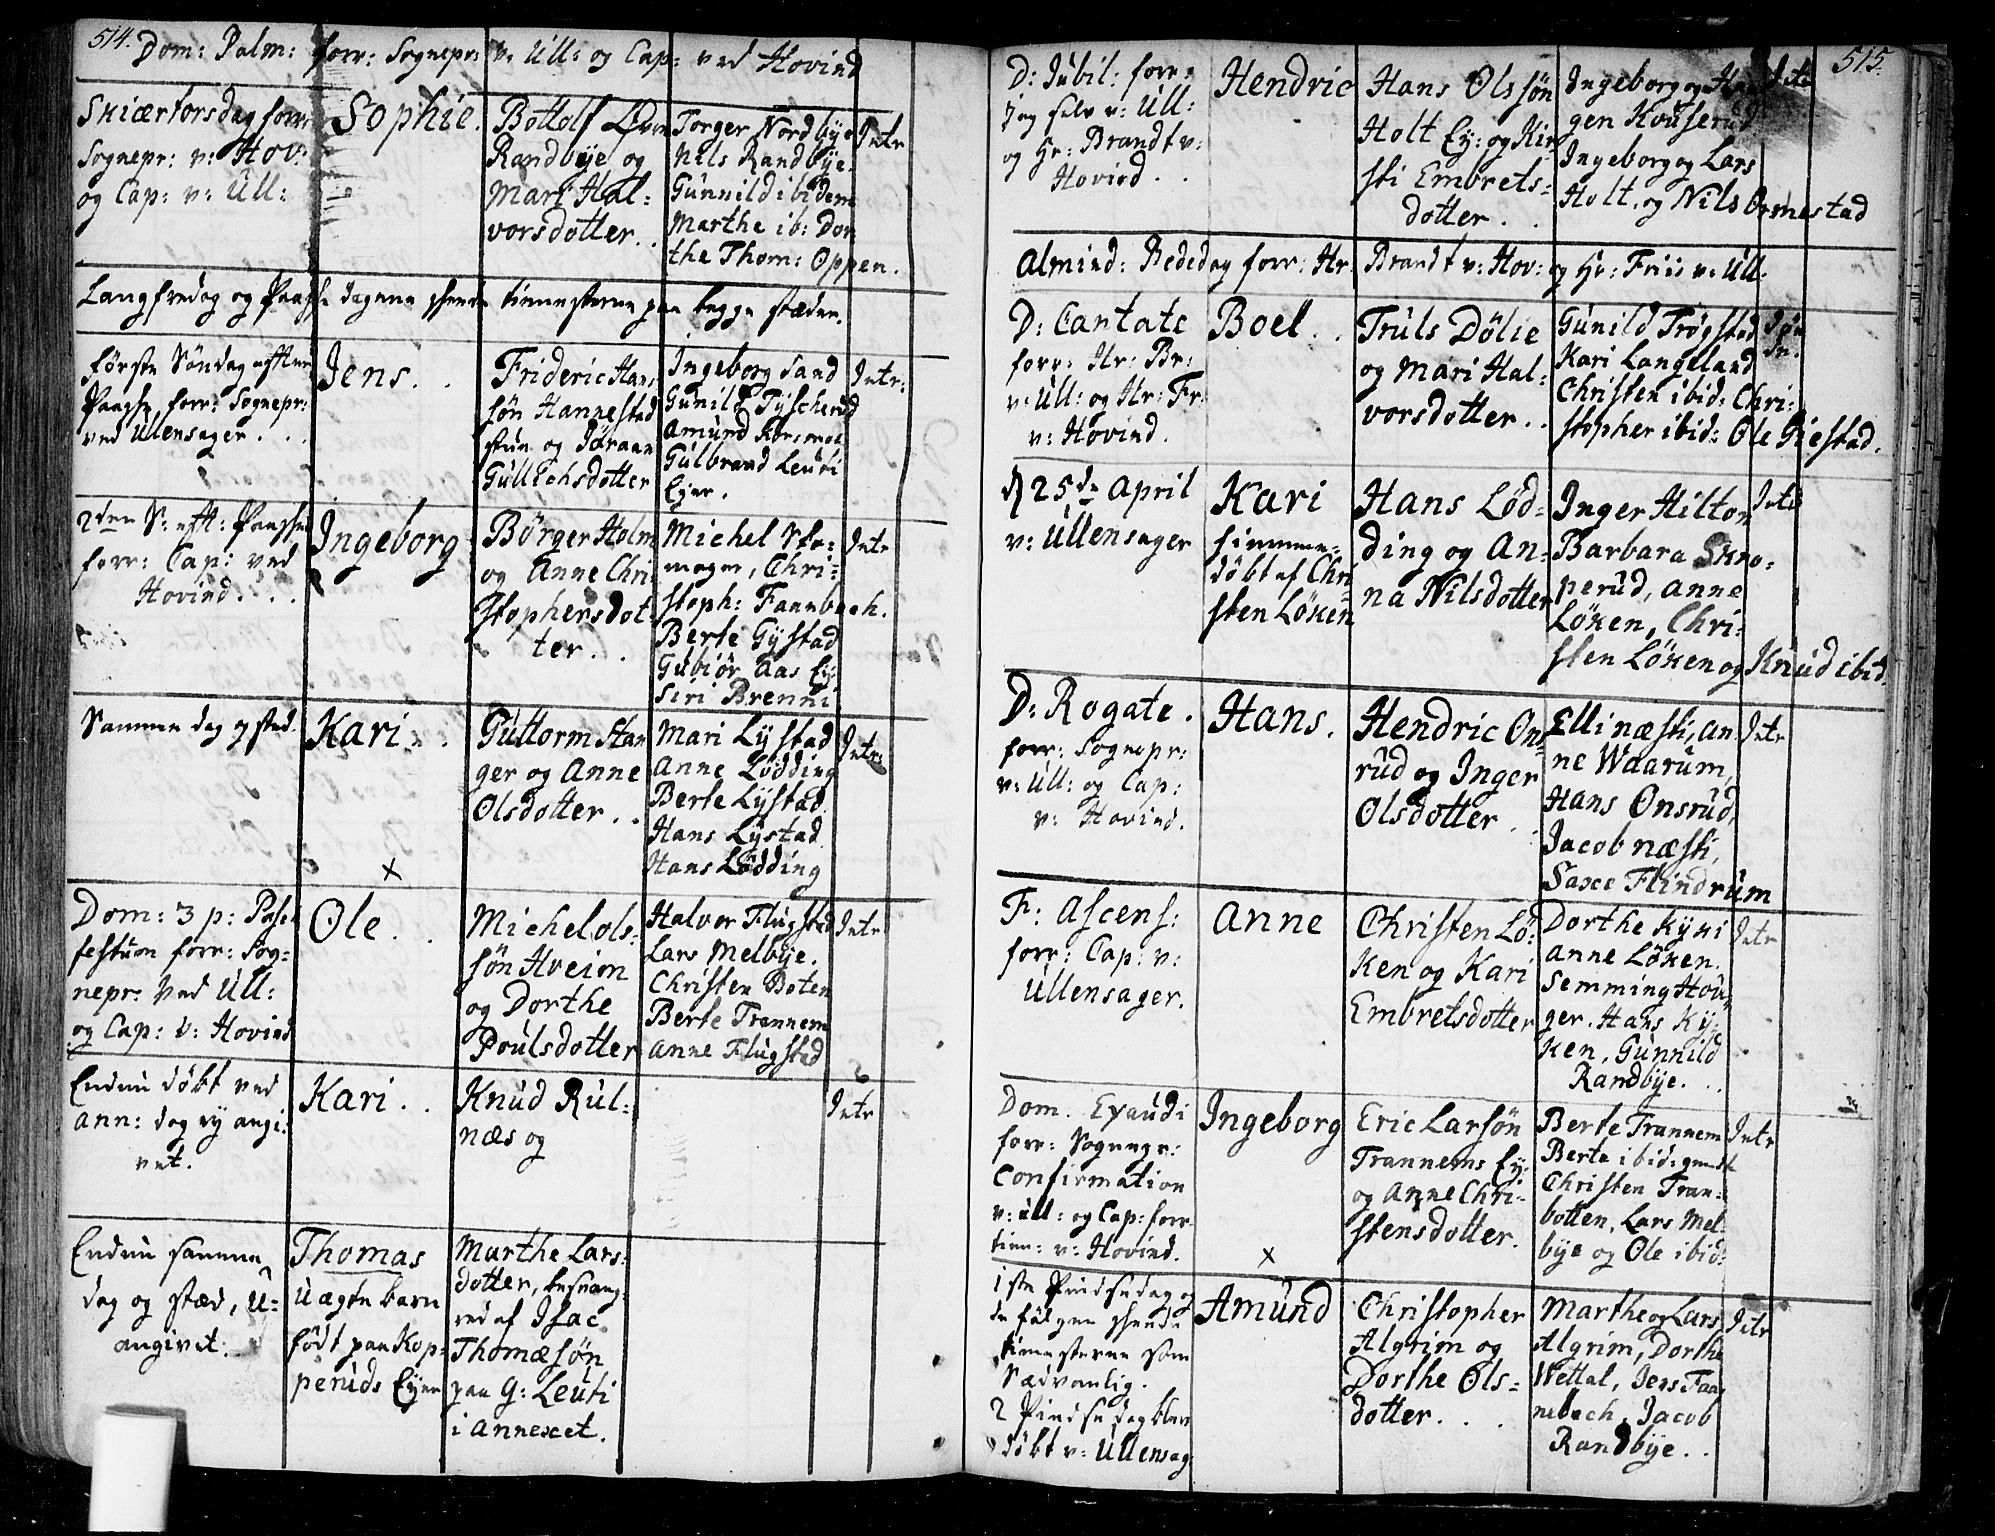 514.
Dom: Palm: forr: Sognepr: v: Ull: og Cap: ved Hovind
Skiærtorsdag forr:
Sognepr: v: Hov:
og Cap: v: Ull:
Sophie.
Bottolf
Randbye og
Mari Hal=
vorsdotter..
Torger Nordbye
Nils Randbye.
Gunnild ibidem
Marthe ib: Dor
the Thom: Oppen.
Intr
Langfredag og Paaske dagene skeede tienesterne paa begge stæder.
første Søndag effter
Paaske, forr: Sognepr:
ved Ulensager...
Jens..
Frideric Han
søn Hannestad
stun og Jøraan
Gulbrandsdotter
Ingeborg Sand
Gunild Tyscherud
Amund Korsmoe
Gulbrand Leuti
Eyer.
Intr:
2den S: eft: Paaske
forr: Cap: ved
Hovind...
Ingeborg
Börger Holm
og Anne Chri
stophersdot=
ter..
Michel Ro=
mager, Chri=
stoph: Fannbech.
Berte Gystad
Gubiör Aas Ey
Siri Brenni
Intr
Samme dag og sted.
Kari..
Guttorm Stan
ger og Anne
Olsdotter..
Mari Lystad
Anne Lødding
Berte Lystad
Hans Lystad
Hans Lødding
Intr:
×
Dom: 3 p: Pasc
festum forr: Sog=
nepr: ved Ull:
og Cap: v: Hovind
Ole..
Michel Ols=
søn Hveim
og Dorthe
Poulsdotter
Halvor Flugstad
Lars Melbye.
Christen Boten
Berte Trannem
Anne Flugstad
Intr
Endnu døbt ved
Ann: dog ey angi=
vet.
Kari..
Knud Rul=
næs og
Intr
Endnu samme
dag og stæd, u=
angivet:
Thomas
Uægte barn
født paa Kop=
peruds Eyer
Marthe Lars=
dotter, besvang=
red af Isac
Thomæsøn
paa G: Leuti
i Annexet.
515.
D: Jubil: forr:
jeg selv v: Ull:
og Hr: Brandt v:
Hovind..
Hendric
Hans Olssøn
Holt Ey: og Kir=
sti Embrets=
dotter..
Ingeborg og
gen Kouserud
Ingeborg og Lars
Holt. og Nils Ormestad
Almind: Bededag forr: Hr Brandt v: Hov: og Hr: Friis v: Ull:
D: Cantate
forr: Hr: Br:
v: Ull: og Hr: Fr:
v: Hovind.
Boel..
Truls Dölie
og Mari Hal=
vorsdotter..
Gunild Trögstad
Kari Langeland
Christen ibid: Chri=
stopher ibid: Ole Giestad.
d 25de April
v: Ullensager
Kari
hiemme=
döbt af Chri
sten Löken
Hans Lød=
ding og An=
na Nilsdotter
Inger Hilton
Barbara Skro=
perud, Anne
Löken, Chri=
sten Löken og Knud ibid.
Intr
D: Rogate.
forr: Sognepr:
v: Ull: og Cap:
v: Hovind.
Hans.
Hendric Ons
rud og Inger
Olsdotter..
Elli næsti, An
ne Waarum,
Hans Onsrud,
Jacob næsti,
Saxe Flindrum
Intr
F: Ascens:
forr: Cap: v:
Ullensager.
Anne
Christen Lö=
ken og Kari
Embretsdotter
Dorthe Kyki
Anne Löken.
Semming Hov=
ger. Hans Ky=
ken, Gunnild
Randbye..
Intr
Dom. Exaudi
forr: Sognepr:
Confirmation
v: Ull: og Cap: forr
tien: v: Hovind.
Ingeborg
×
Eric Larsön
Trannems Ey:
og Anne Chri=
stensdotter.
Berte Trannem
Berte ibid:
Christen Tran=
botten, Lars Mel=
bye og Ole ibid:
Intr
1ste Pindsedag og
de fölgen skeede
tienesterne som
Sædvanlig.
2 Pindsedag blev
döbt v: Ullensag
Amund
Christopher
Algrim og
Dorthe Ols=
dotter...
Marthe og Lars
Algrim, Dorthe
Wettal, Jens Fan
nebech, Jacob
Randbye..
Intr